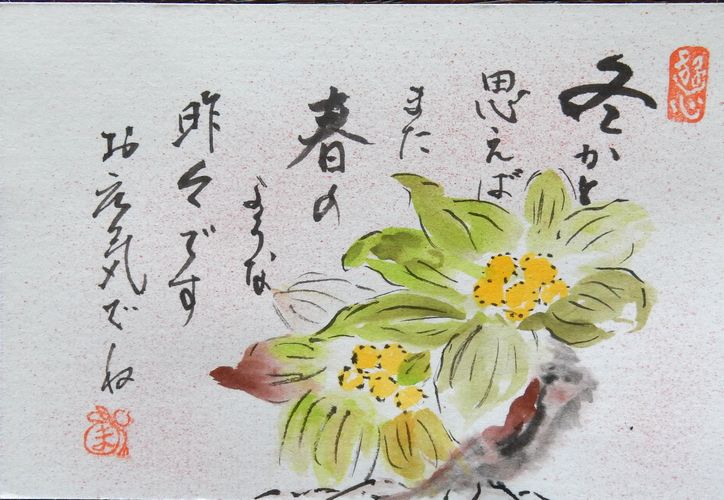 冬かと
思えば
また
春の
ような
昨今です
お元気でね